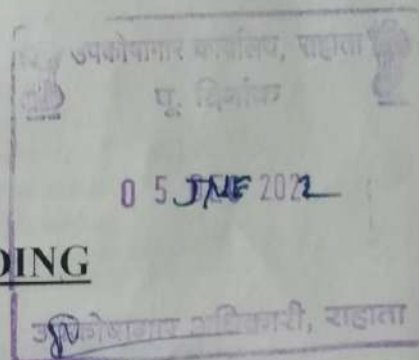 उपकोषागार कार्यालय, राहाता
पू. दिनांक
0 5 JUNE 2022
DING
उपकोषागार अधिकारी, राहाता